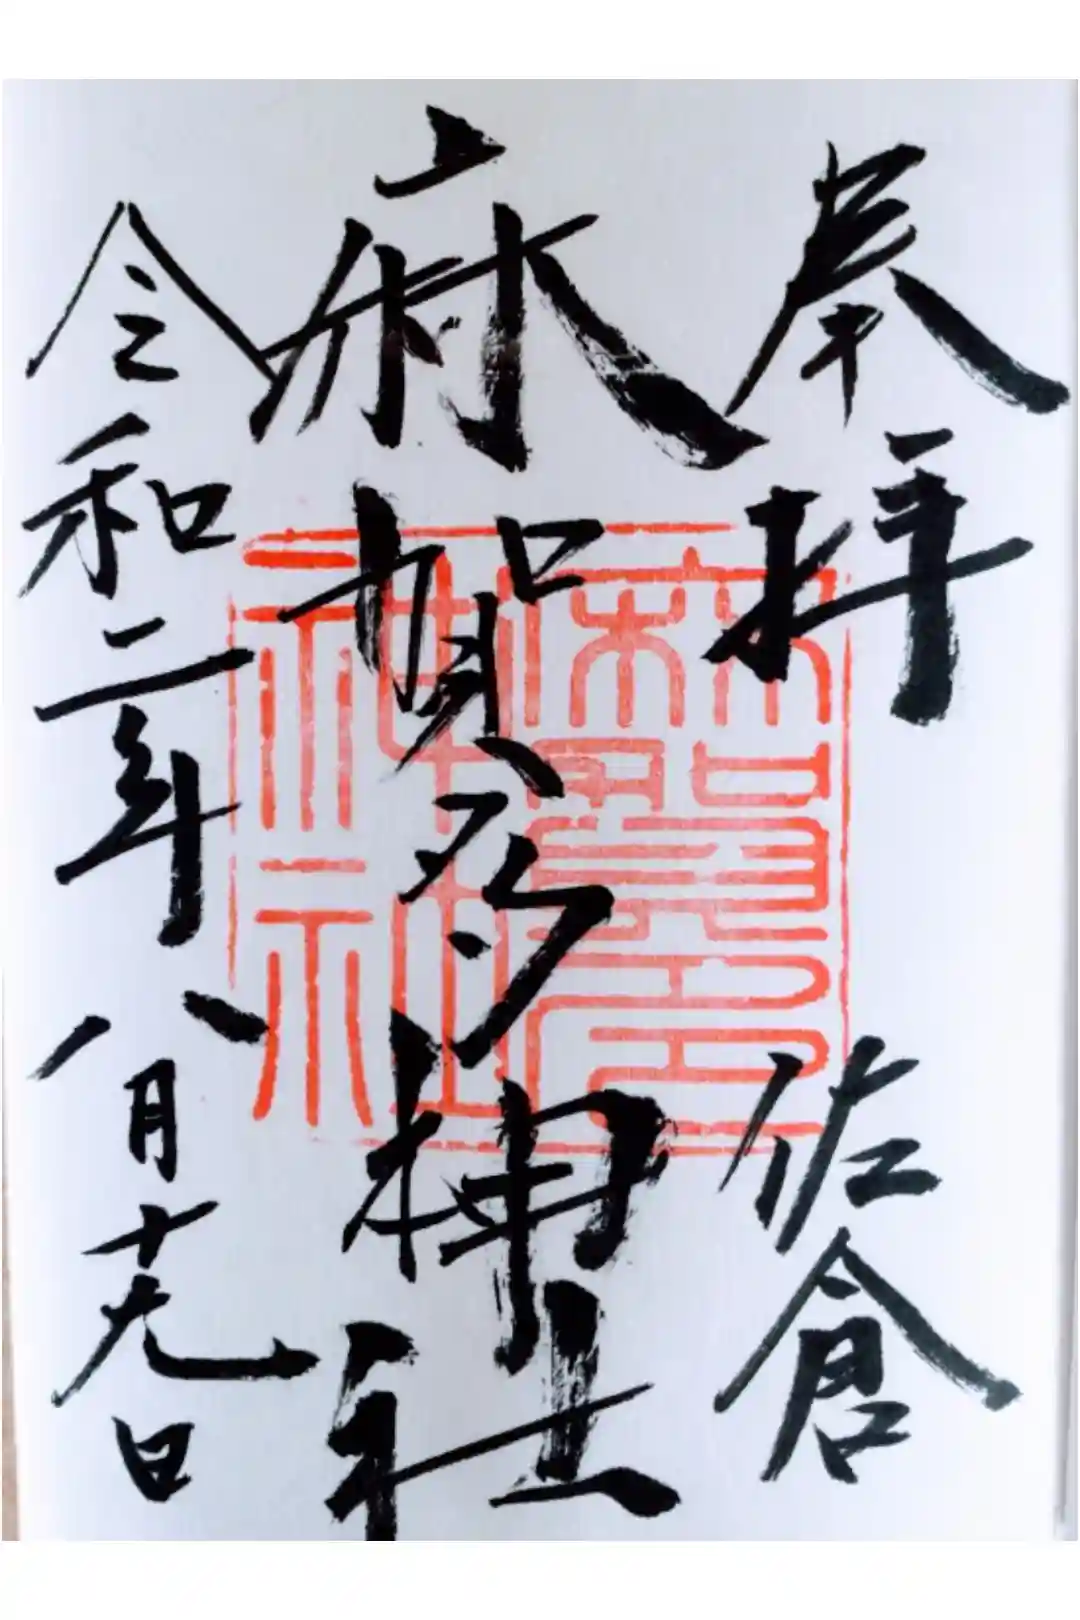 奉拝
佐倉
麻賀多神社
麻賀多
神社
令和二年八月十九日